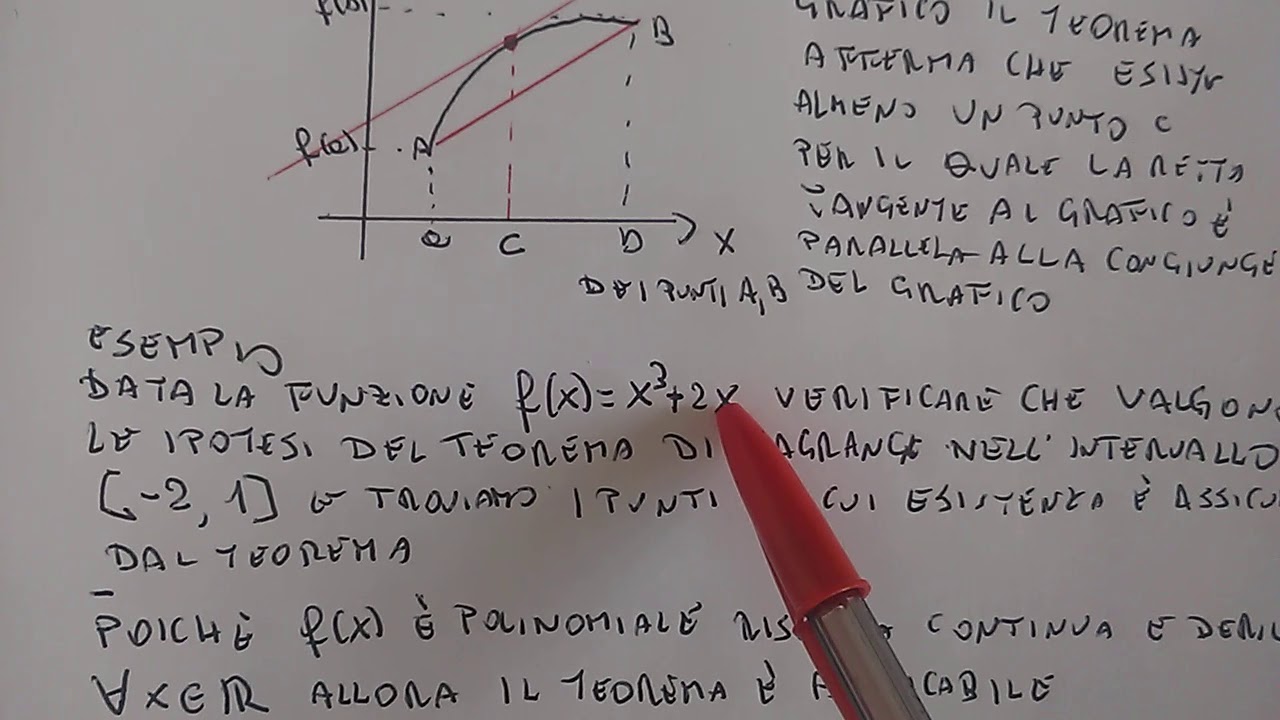 f(b)
B
f(a)
A
a C b X
GRAFICO IL TEOREMA
AFFERMA CHE ESISTE
ALMENO UN PUNTO C
PER IL QUALE LA RETTA
TANGENTE AL GRAFICO È
PARALLELA ALLA CONGIUNGE
DEI PUNTI A, B DEL GRAFICO
ESEMPIO
DATA LA FUNZIONE f(x)=x³+2x VERIFICARE CHE VALGON
LE IPOTESI DEL TEOREMA DI AGRANGE NELL'INTERVALLO
[-2, 1] E TROVIAMO I PUNTI CUI ESISTENZA È ASSICU
DAL TEOREMA
POICHÈ f(x) È POLINOMIALE RIS CONTINUA E DERI
∀x∈R ALLORA IL TEOREMA È A CABILE